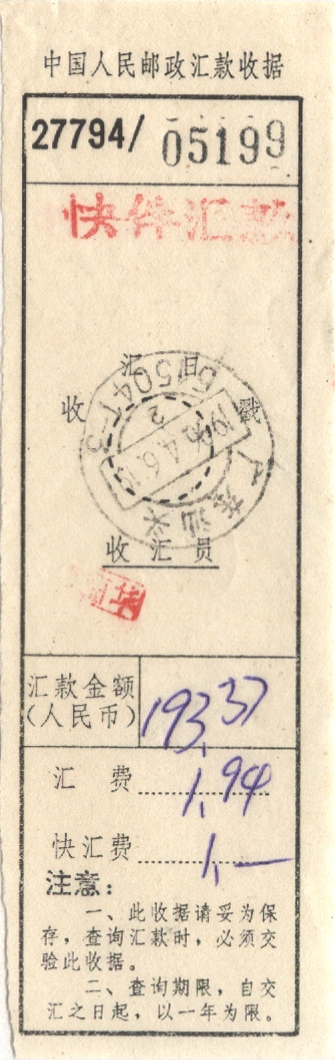 中国人民邮政汇款收据
27794/ 05199
快件汇款
汇 日
收 戳
广东汕头
515041-3
2
1995.4.6.
收汇员
汇款金额
(人民币)
193.37
汇 费 1.94
快汇费 1.—
注意:
一、此收据请妥为保
存,查询汇款时,必须交
验此收据。
二、查询期限,自交
汇之日起,以一年为限。